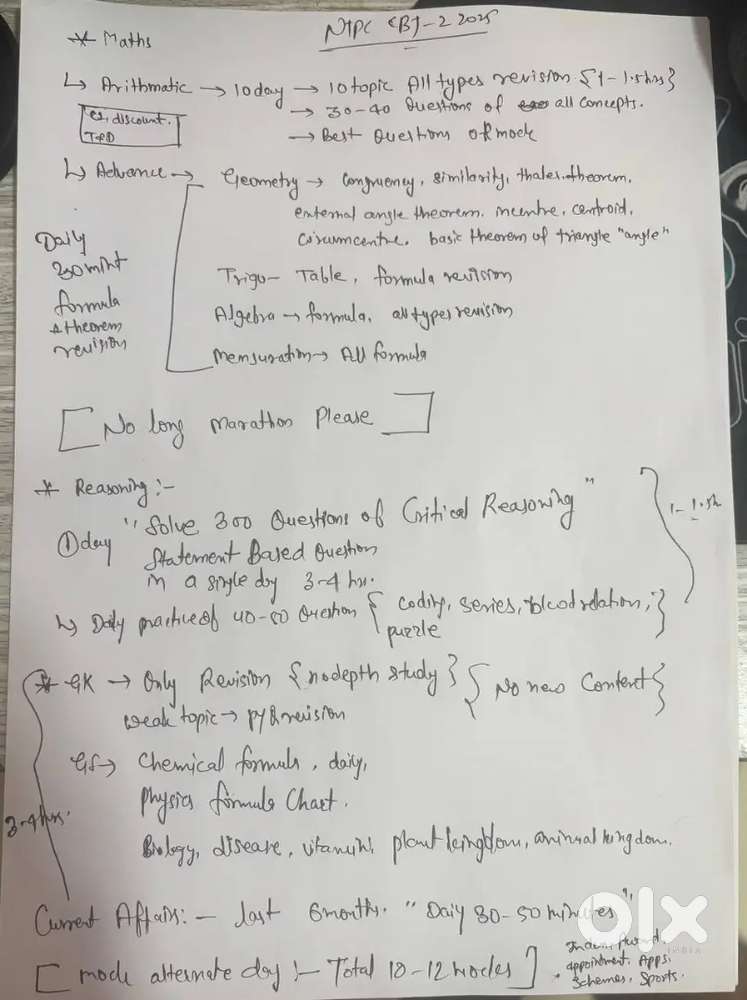 NTPC CBT-2 2025
* Maths
↳ Arithmatic → 10 day → 10 topic All types revision {1-1.5hrs}
→ 30-40 Questions of all concepts.
discount.
→ Best Questions of mock
↳ Advance → Geometry → Congruency, similarity, thales theorem,
external angle theorem. incentre, centroid,
circumcentre, basic theorem of triangle "angle"
Daily
30 mint
formula
& theorem
revision
Trigo- Table, formula revision
Algebra → formula, all types revision
Mensuration → All formula
[No long marathon Please]
* Reasoning:-
① day "Solve 300 Questions of Critical Reasoning"
Statement Based Question
in a single day 3-4 hr.
1-1.5h
↳ Daily practice of 40-50 Question {coding, series, blood relation,
puzzle}
* GK → Only Revision {no depth study} {No new Content}
weak topic → PYQ revision
GS → Chemical formula, daily,
Physics formula Chart.
3-4 hrs.
Biology, disease, vitamin, plant kingdom, animal kingdom.
Current Affairs:- last 6 months. "Daiy 30-50 minutes"
[mock alternate day :- Total 10-12 mocks]
appointment, Apps,
Schemes, Sports.
olx
INDIA